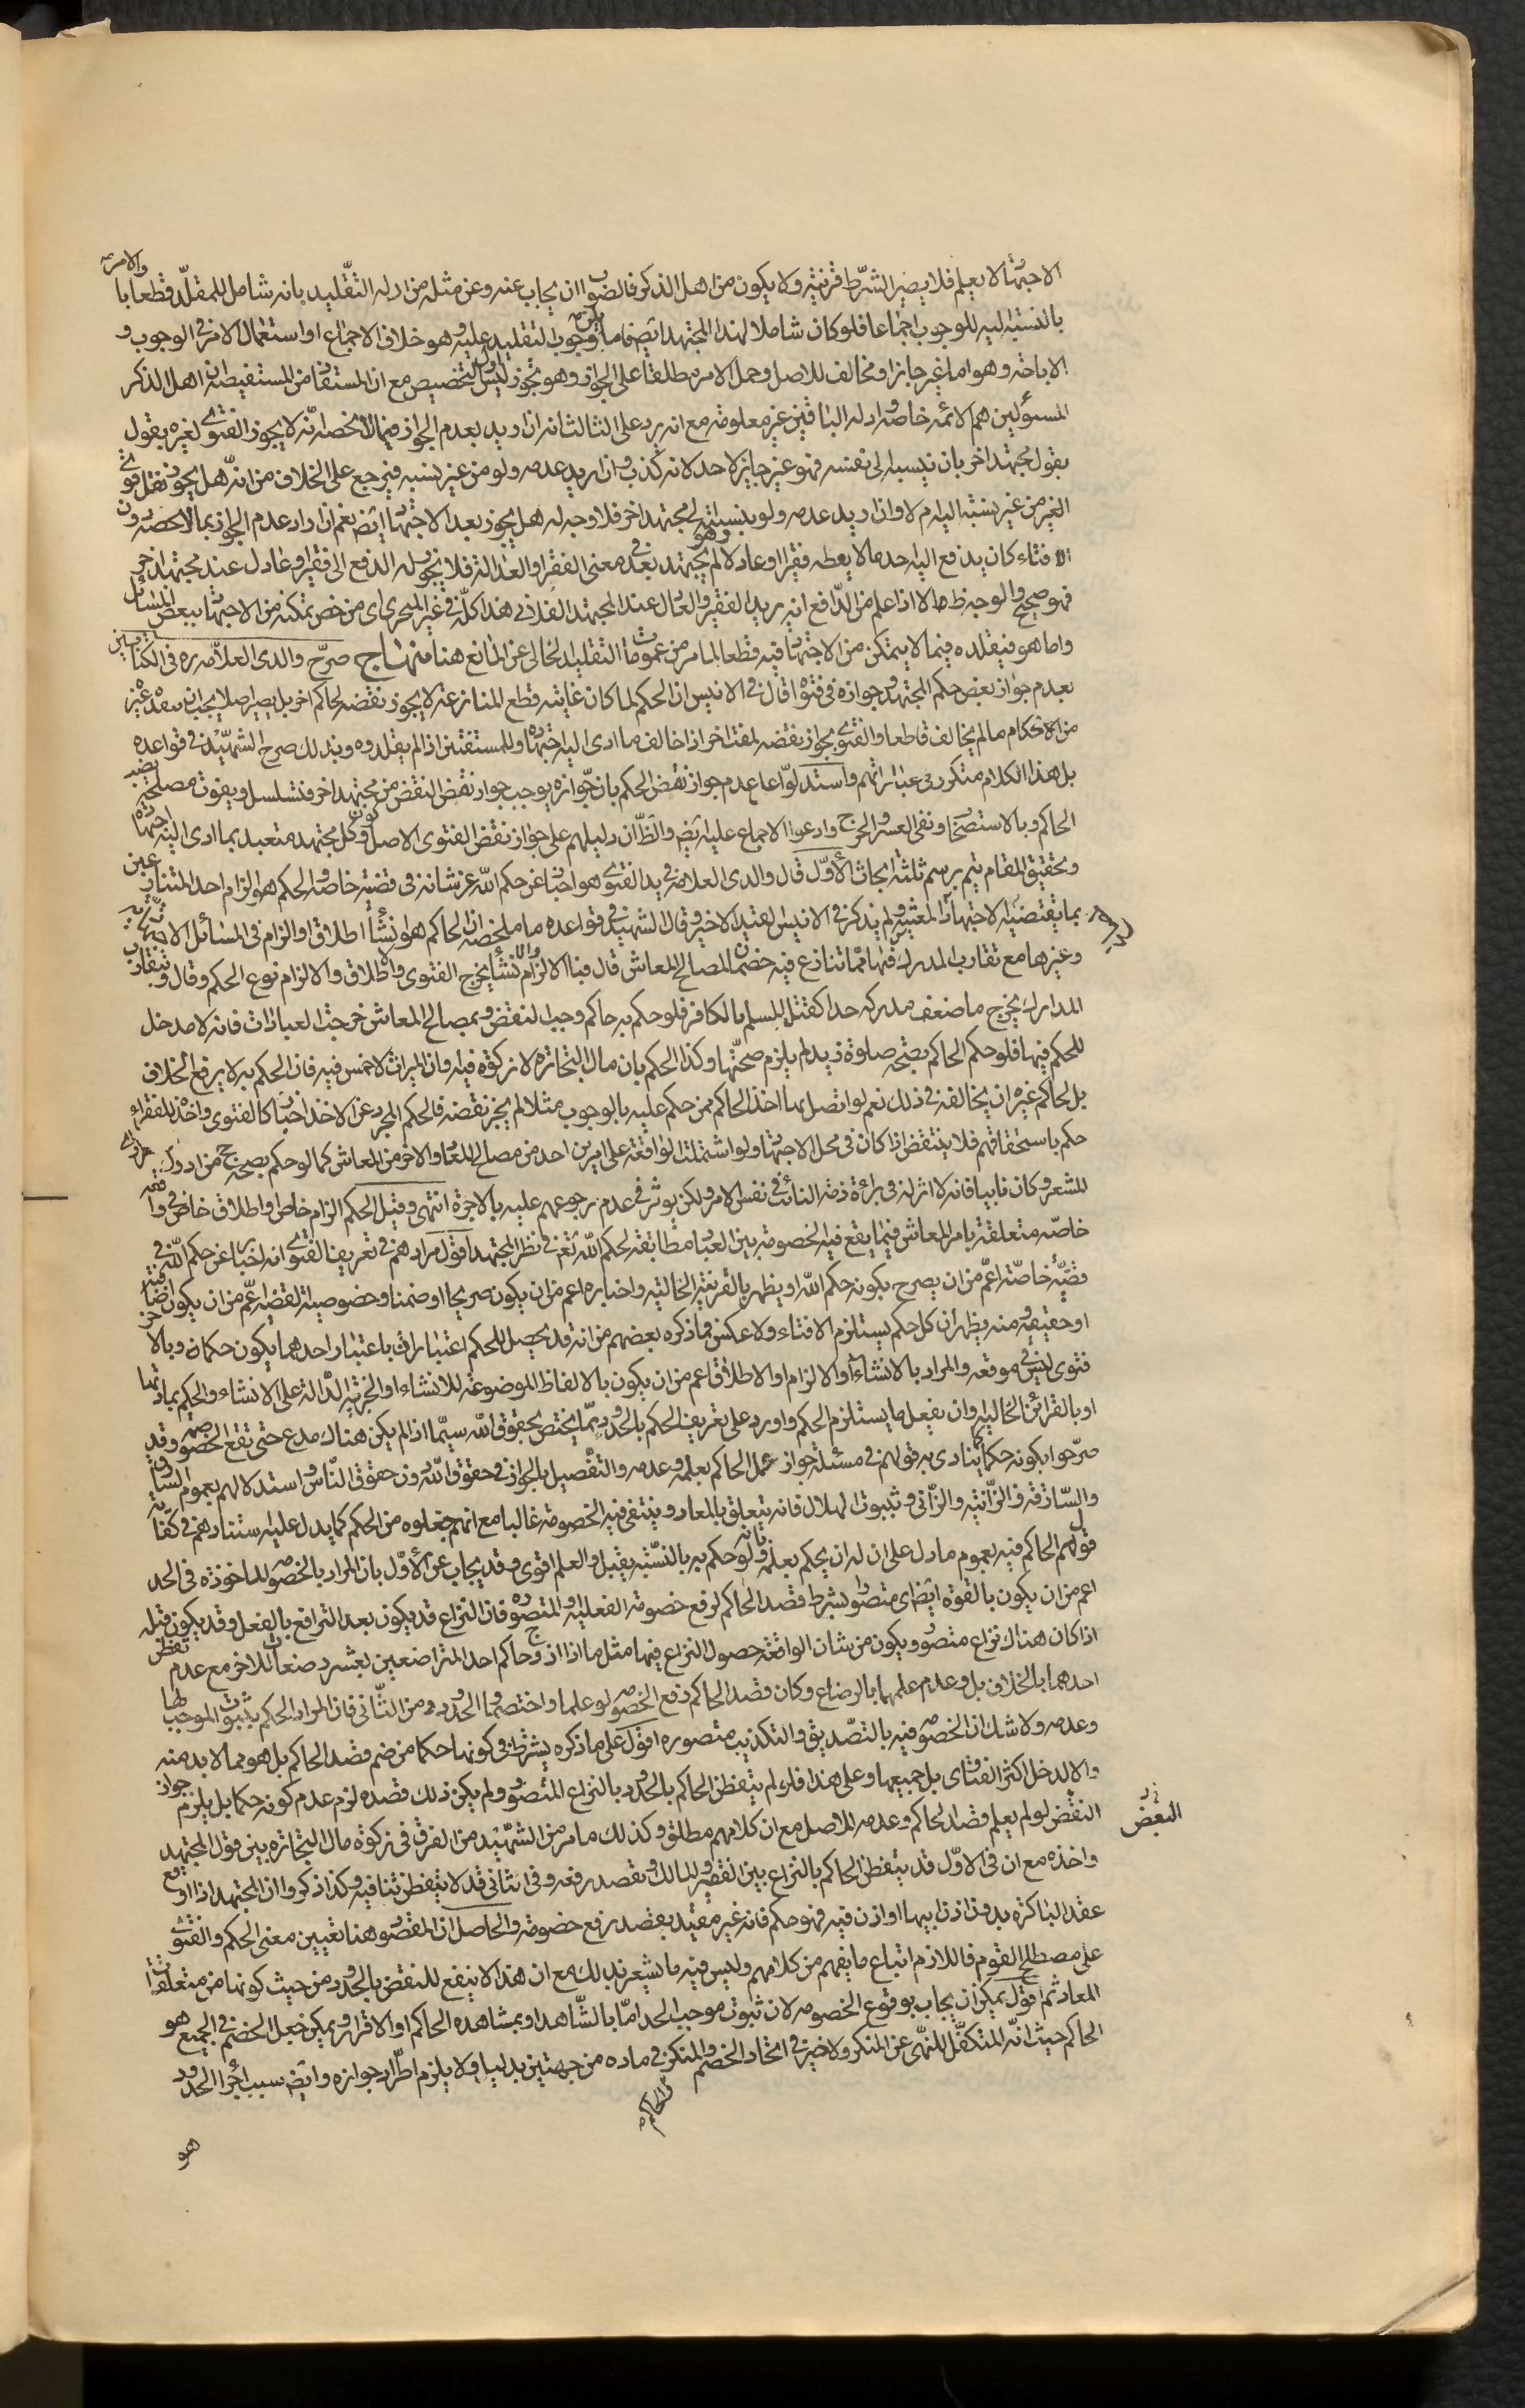 الاجتهاد لا يعلم فلا يصير الشرط قرينته ولا يكون من اهل الذكر فالصواب ان يجاب عنه وعن مثله من ادلة التقليد بانه شامل للمقلد قطعا والامر
بالنسبة اليه للوجوب اجماعا فلو كان شاملا لهذا المجتهد ايضا وجوب التقليد عليه وهو خلاف الاجماع او استعمال الامر في الوجوب و
الاباحة وهو اما غير جائز او مخالف للاصل وحمل الامر مطلقا على الجواز وهو تجوز ليس اولى من التخصيص مع ان المستفاد من المستفيضة ان اهل الذكر
المسئولين هم الائمة خاصة وادلة الباقين غير معلومة مع انه يرد على الثالث انه ان اريد بعدم الجواز فيما لا نحصر انه لا يجوز الفتوى لغيره بقول
بقول مجتهد اخر بان ينسبه الى نفسه فهو غير جايز لاحد لانه كذب وان اريد عدمه ولو من غير نسبة فيرجع على الخلاف من انه هل يجوز نقل فتوى
الغير من غير نسبته اليه ام لا وان اريد عدمه ولو بنسبته الى مجتهد اخر فلا وجه له هل يجوز بعد الاجتهاد ايضا نعم ان اراد عدم الجواز بما لا نحصر دون
الافتاء كان يدفع اليه احد مالا يعطه فقيرا او عادلا وهو لم يجتهد بعد في معنى الفقر او العدالة فلا يجوز له الدفع الى فقير او عادل عند مجتهد اخر
فهو صحيح والوجه ظ الا اذا علم من الدافع انه يريد الفقير والعادل عند المجتهد الفلاني هذا كله في غير المتجزي اي من خص تمكنه من الاجتهاد ببعض المسائل
واما هو فتقليده فيما لا يتمكن من الاجتهاد فيه قطعا لما مر من عمومات التقليد الخالي عن المانع هنا منهاج صرح والدي العلامة ره في الكتابين
بعدم جواز نقض حكم المجتهد وجوازه في فتواه قال في الانيس ان الحكم لما كان غايته قطع المنازعة لا يجوز نقضه لحاكم اخر بل يصير اصلا يجب انفاذه غير
من الاحكام ما لم يخالف قاطعا والفتوى يجوز نقضه لمفت اخر اذا خالف ما ادى اليه اجتهاده وللمستفتين اذا لم يقلدوه وبذلك صرح الشهيد في قواعده
بل هذا الكلام متكرر في عباراتهم واستدلوا على عدم جواز نقض الحكم بان جوازه يوجب جواز نقض النقض من مجتهد اخر فيتسلسل ويفوت مصلحة نصب
الحاكم وبالاستصحاب ونفي العسر والحرج وادعوا الاجماع عليه ايضا والظ ان دليلهم على جواز نقض الفتوى الاصل وكون كل مجتهد متعبد بما ادى اليه اجتهاده
وتحقيق المقام يتم برسم ثلثة ابحاث الاول قال والدي العلامة في يد الفتوى هو اخبار عن حكم الله عز شانه في قضية خاصة والحكم هو الزام احد المتنازعين
بما يقتضيه الاجتهاد المعتبر ولم يذكر في الانيس القيد الاخير وقال الشهيد في قواعده ما ملخصه ان الحاكم هو انشاء اطلاق او الزام في المسائل الاجتهادية
وغيرها مع تقارب المدارك فيها مما تنازع فيه خصمان لمصالح المعاش قال فبالانشاء يخرج الفتوى والاطلاق والالزام نوع الحكم وقال وبتقارب
المدارك يخرج ما ضعف مدركه جدا كقتل المسلم بالكافر فلو حكم به حاكم وجب النقض وبمصالح المعاش خرجت العبادات فانه لا مدخل
للحكم فيها فلو حكم الحاكم بصحة صلوة زيد لم يلزم صحتها وكذا الحكم بان مال التجارة لا زكوة فيه وان الميراث لا خمس فيه فان الحكم به لا يرفع الخلاف
بل لحاكم غيره ان يخالفه في ذلك نعم لو اتصل بها اخذ الحاكم ممن حكم عليه بالوجوب مثلا لم يجز نقضه فالحكم المجرد عن الاخذ اخبار كالفتوى واخذه للفقراء
حكم باستحقاقهم فلا ينقض اذا كان في محل الاجتهاد ولو اشتملت الواقعة على امرين احد من مصالح المعاد والاخر من المعاش كما لو حكم بصحة حج من ادرك
المشعر وكان نايبا فانه لا اثر له في براءة ذمة النائب في نفس الامر ولكن يوثر في عدم رجوعهم عليه بالاجرة انتهى وقيل الحكم الزام خاص او اطلاق خاص في واقعة
خاصة متعلقة بامر المعاش فيما يقع فيه الخصومة بين العباد مطابقة لحكم الله تع في نظر المجتهد اقول مرادهم في تعريف الفتوى انه اخبار عن حكم الله في
قضية خاصة اعم من ان يصرح بكونه حكم الله او يظهر بالقرينة الحالية واخباره اعم من ان يكون صريحا او ضمنا وخصوصية القضية اعم من ان يكون اضافية
او حقيقية ومنه يظهر ان كل حكم يستلزم الافتاء ولا عكس وما ذكره بعضهم من انه قد يحصل للحكم اعتباران فباعتبار احدهما يكون حكما وبالاخر
فتوى ليس في موقعه والمراد بالانشاء او الالزام او الاطلاق اعم من ان يكون بالالفاظ الموضوعة للانشاء او الخبرية الدالة على الانشاء والحكم بمادتها
او بالقرائن الحالية وان يفعل ما يستلزم الحكم واورد على تعريف الحكم بالحدود مما يختص بحقوق الله سيما اذا لم يكن هناك مدع حتى تقع الخصومة وقد
صرحوا بكونه حكما كما ينادي به قولهم في مسئلة جواز عمل الحاكم بعلمه وعدمه والتفصيل بالجواز في حقوق الله دون حقوق الناس واستدلالهم بعموم السارق
والسارقة والزانية والزاني وثبوت الهلال فانه يتعلق بالمعاد وينتفي فيه الخصومة غالبا مع انهم جعلوه من الحكم كما يدل عليه استنادهم في كفاية
قول الحاكم فيه بعموم ما دل على ان له ان يحكم بعلمه وبانه لو حكم به بالنسبة يقبل والعلم اقوى وقد يجاب عن الاول بان المراد بالخصومة الماخوذة في الحد
اعم من ان يكون بالقوة ايضا اي متصورا بشرط قصد الحاكم لرفع خصومة الفعلية او المتصورة فان النزاع قد يكون بعد الترافع بالفعل وقد يكون قبله
اذا كان هناك نزاع متصور ويكون من شان الواقعة حصول النزاع فيها مثل ما اذا ازوج حاكم احد المتراضعين بعشر رضعات للاخر مع عدم تفطن
احدهما بالخلاف بل وعدم علمهما بالرضاع وكان قصد الحاكم دفع الخصومة لو علما واختصما والحدود من الثاني فان المراد الحكم بثبوت الموجب لها
وعدمه ولا شك ان الخصومة فيه بالتصديق والتكذيب متصورة اقول على ما ذكره يشترط في كونها حكما من ضم قصد الحاكم بل هو مما لا بد منه
والا لدخل اكثر الفتاوى بل جميعها وعلى هذا فلو لم يتفطن الحاكم بالحدود بالنزاع المتصور ولم يكن ذلك قصده لزم عدم كونه حكما بل يلزم جواز
النقض لو لم يعلم قصد الحاكم وعدمه للاصل مع ان كلامهم مطلق وكذلك ما مر من الشهيد من الفرق في زكوة مال التجارة بين قول المجتهد
واخذه مع ان في الاول قد يتفطن الحاكم بالنزاع بين الفقير والمالك ويقصد رفعه وفي الثاني قد لا يتفطن تنافيه وكذا ذكروا ان المجتهد اذا اوقع
عقد الباكرة بدون اذن ابيها او اذن فيه فهو حكم فانه غير مقيد بقصد رفع خصومة والحاصل ان المقصود هنا تعيين معنى الحكم والفتوى
على مصطلح القوم فاللازم اتباع ما يفهم من كلامهم وليس فيه ما يشعر بذلك مع ان هذا لا ينفع للنقض بالحدود من حيث كونها من متعلقات
المعاد ثم اقول يمكن ان يجاب بوقوع الخصومة لان ثبوت موجب الحد اما بالشاهد او بمشاهدة الحاكم او الاقرار ويمكن جعل الخصم في الجميع هو
الحاكم حيث انه المتكفل للنهي عن المنكر ولا خير في اتحاد الخصم والمنكر في مادة من جهتين بدليل ولا يلزم اطراد جوازه وايضا سبب اجراء الحدود
والحاكم
هو
البعض